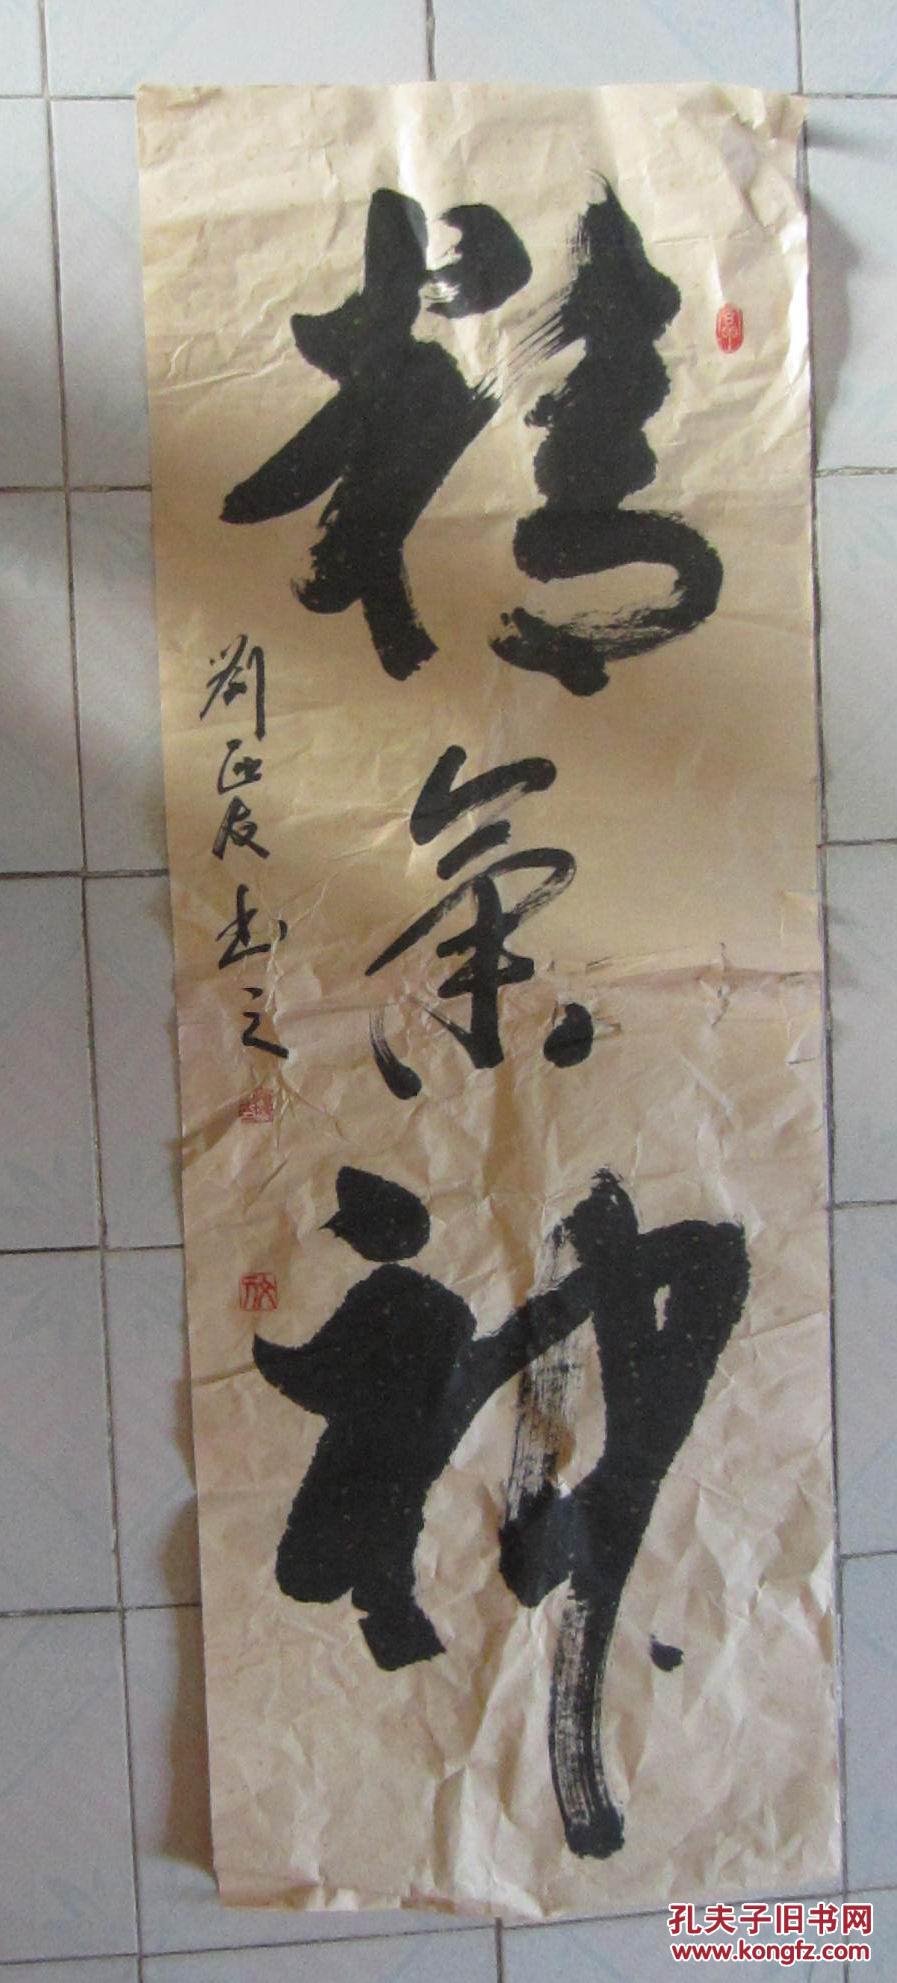 精氣神
劉正友書之
孔夫子旧书网
www.kongfz.com